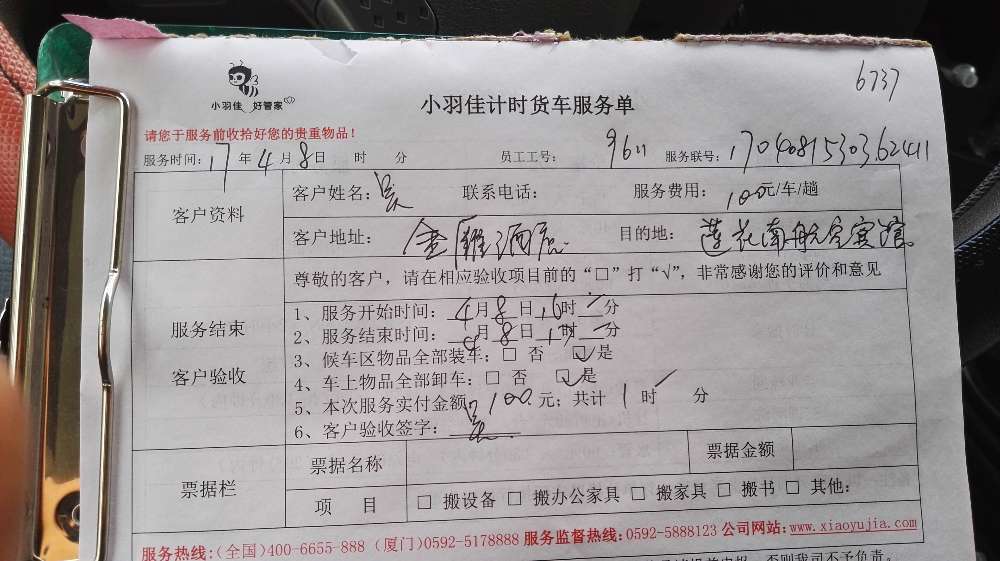 6737
小羽佳 好管家
小羽佳计时货车服务单
请您于服务前收拾好您的贵重物品！
服务时间：17年4月8日 时 分 员工工号：9611 服务联号：1704081530362411
客户资料
客户姓名：吴 联系电话： 服务费用：100元/车/趟
客户地址：金雁酒店 目的地：莲花南航空宾馆
尊敬的客户，请在相应验收项目前的“□”打“√”，非常感谢您的评价和意见
服务结束
客户验收
1、服务开始时间：4月8日16时 分
2、服务结束时间：4月8日17时 分
3、候车区物品全部装车：□ 否 ☑是
4、车上物品全部卸车：□ 否 ☑是
5、本次服务实付金额100元；共计1时 分
6、客户验收签字：吴
票据栏
票据名称 票据金额
项 目 □ 搬设备 □ 搬办公家具 □ 搬家具 □ 搬书 □ 其他：
服务热线：（全国）400-6655-888（厦门）0592-5178888 服务监督热线：0592-5888123 公司网站：www.xiaoyujia.com
否则我司不予负责。